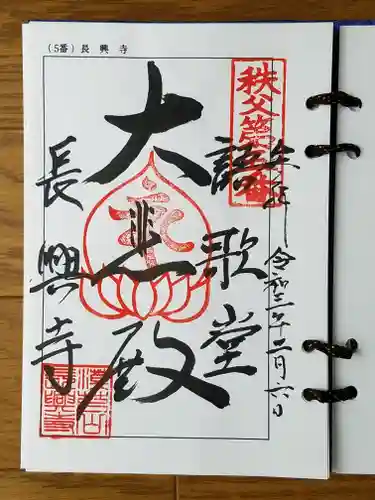 (5番) 長興寺
秩父第五番
奉拝
令和二年十二月六日
語歌堂
大悲殿
長興寺